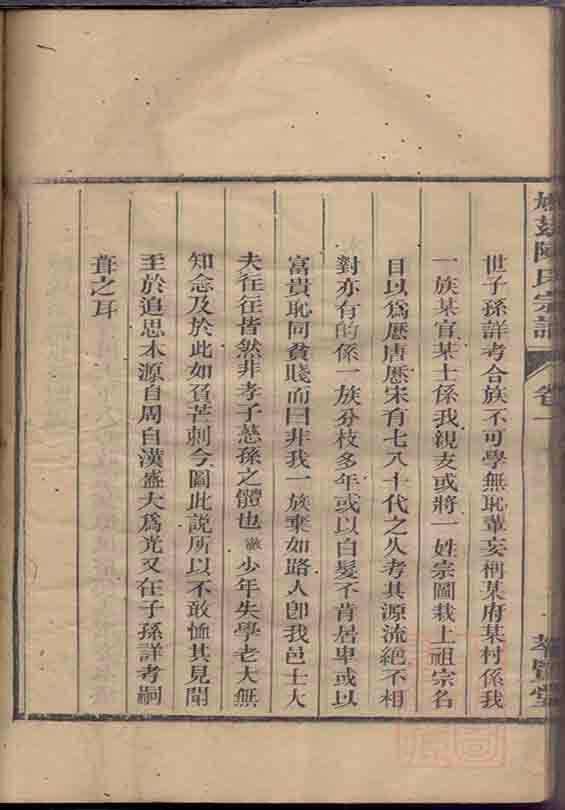 陳氏宗譜 卷一
世子孫詳考合族不可學無恥輩妄稱某府某村係我
一族某官某士係我親支或將一姓宗圖栽上祖宗名
目以爲歷唐歷宋有七八十代之久考其源流絕不相
對亦有的係一族分枝多年或以白髮不肯居卑或以
富貴恥同貧賤而曰非我一族棄如路人卽我邑士大
夫往往皆然非孝子慈孫之體也 徽 少年失學老大無
知念及於此如負芒刺今圖此說所以不敢恤其見聞
至於追思木源自周自漢盛大爲光又在子孫詳考嗣
葺之耳